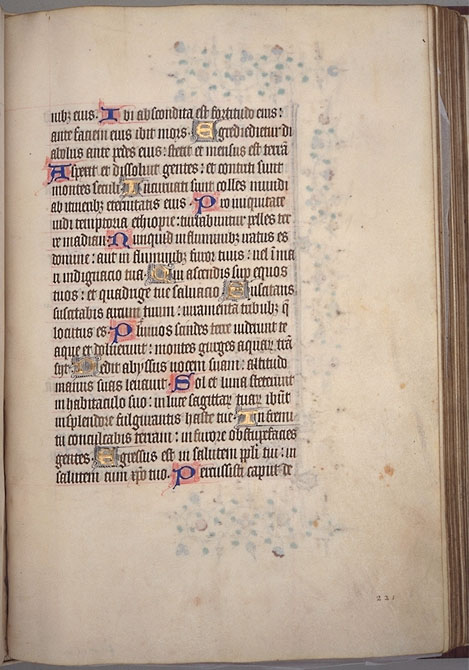 nibz eius. Ibi abscondita est fortitudo eius:
ante faciem eius ibit mors. Egredietur di
abolus ante pedes eius: stetit et mensus est terrã
Aspexit et dissoluit gentes: et contriti sunt
montes seculi Incuruati sunt colles mundi
ab itineribz eternitatis eius. Pro iniquitate
uidi temptoria ethiopie: turbabuntur pelles ter
re madian. Nunquid in fluminibz iratus es
domine: aut in fluminibz furor tuus: uel ĩ ma
ri indignacio tua. Qui ascendis sup equos
tuos: et quadrige tue saluacio Suscitans
suscitabis arcum tuum: iuramenta tribubz q̃
locutus es. Fluuios scindes terre uiderunt te
aque et doluerunt: montes gurges aquarum trã
syt. Dedit abyssus uocem suam: altitudo
manus suas leuauit. Sol et luna steterunt
in habitaculo suo: in luce sagittarum tuarum ibũt
in splendore fulgurantis haste tue. In fremi
tu conculcabis terram: in furore obstupefacies
gentes. Egressus es in salutem ppłi tui: in
salutem cum xpo tuo. Percussisti caput de
221